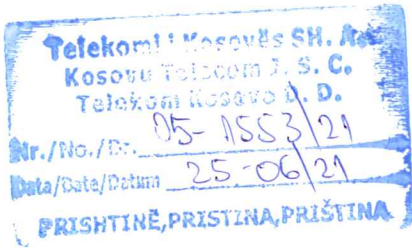 Telekomi i Kosovës SH. A.
Kosovo Telecom J. S. C.
Telekom Kosova D. D.
Nr./No./Br. 05-1553/21
Data/Date/Datum 25-06/21
PRISHTINË,PRISTINA,PRIŠTINA